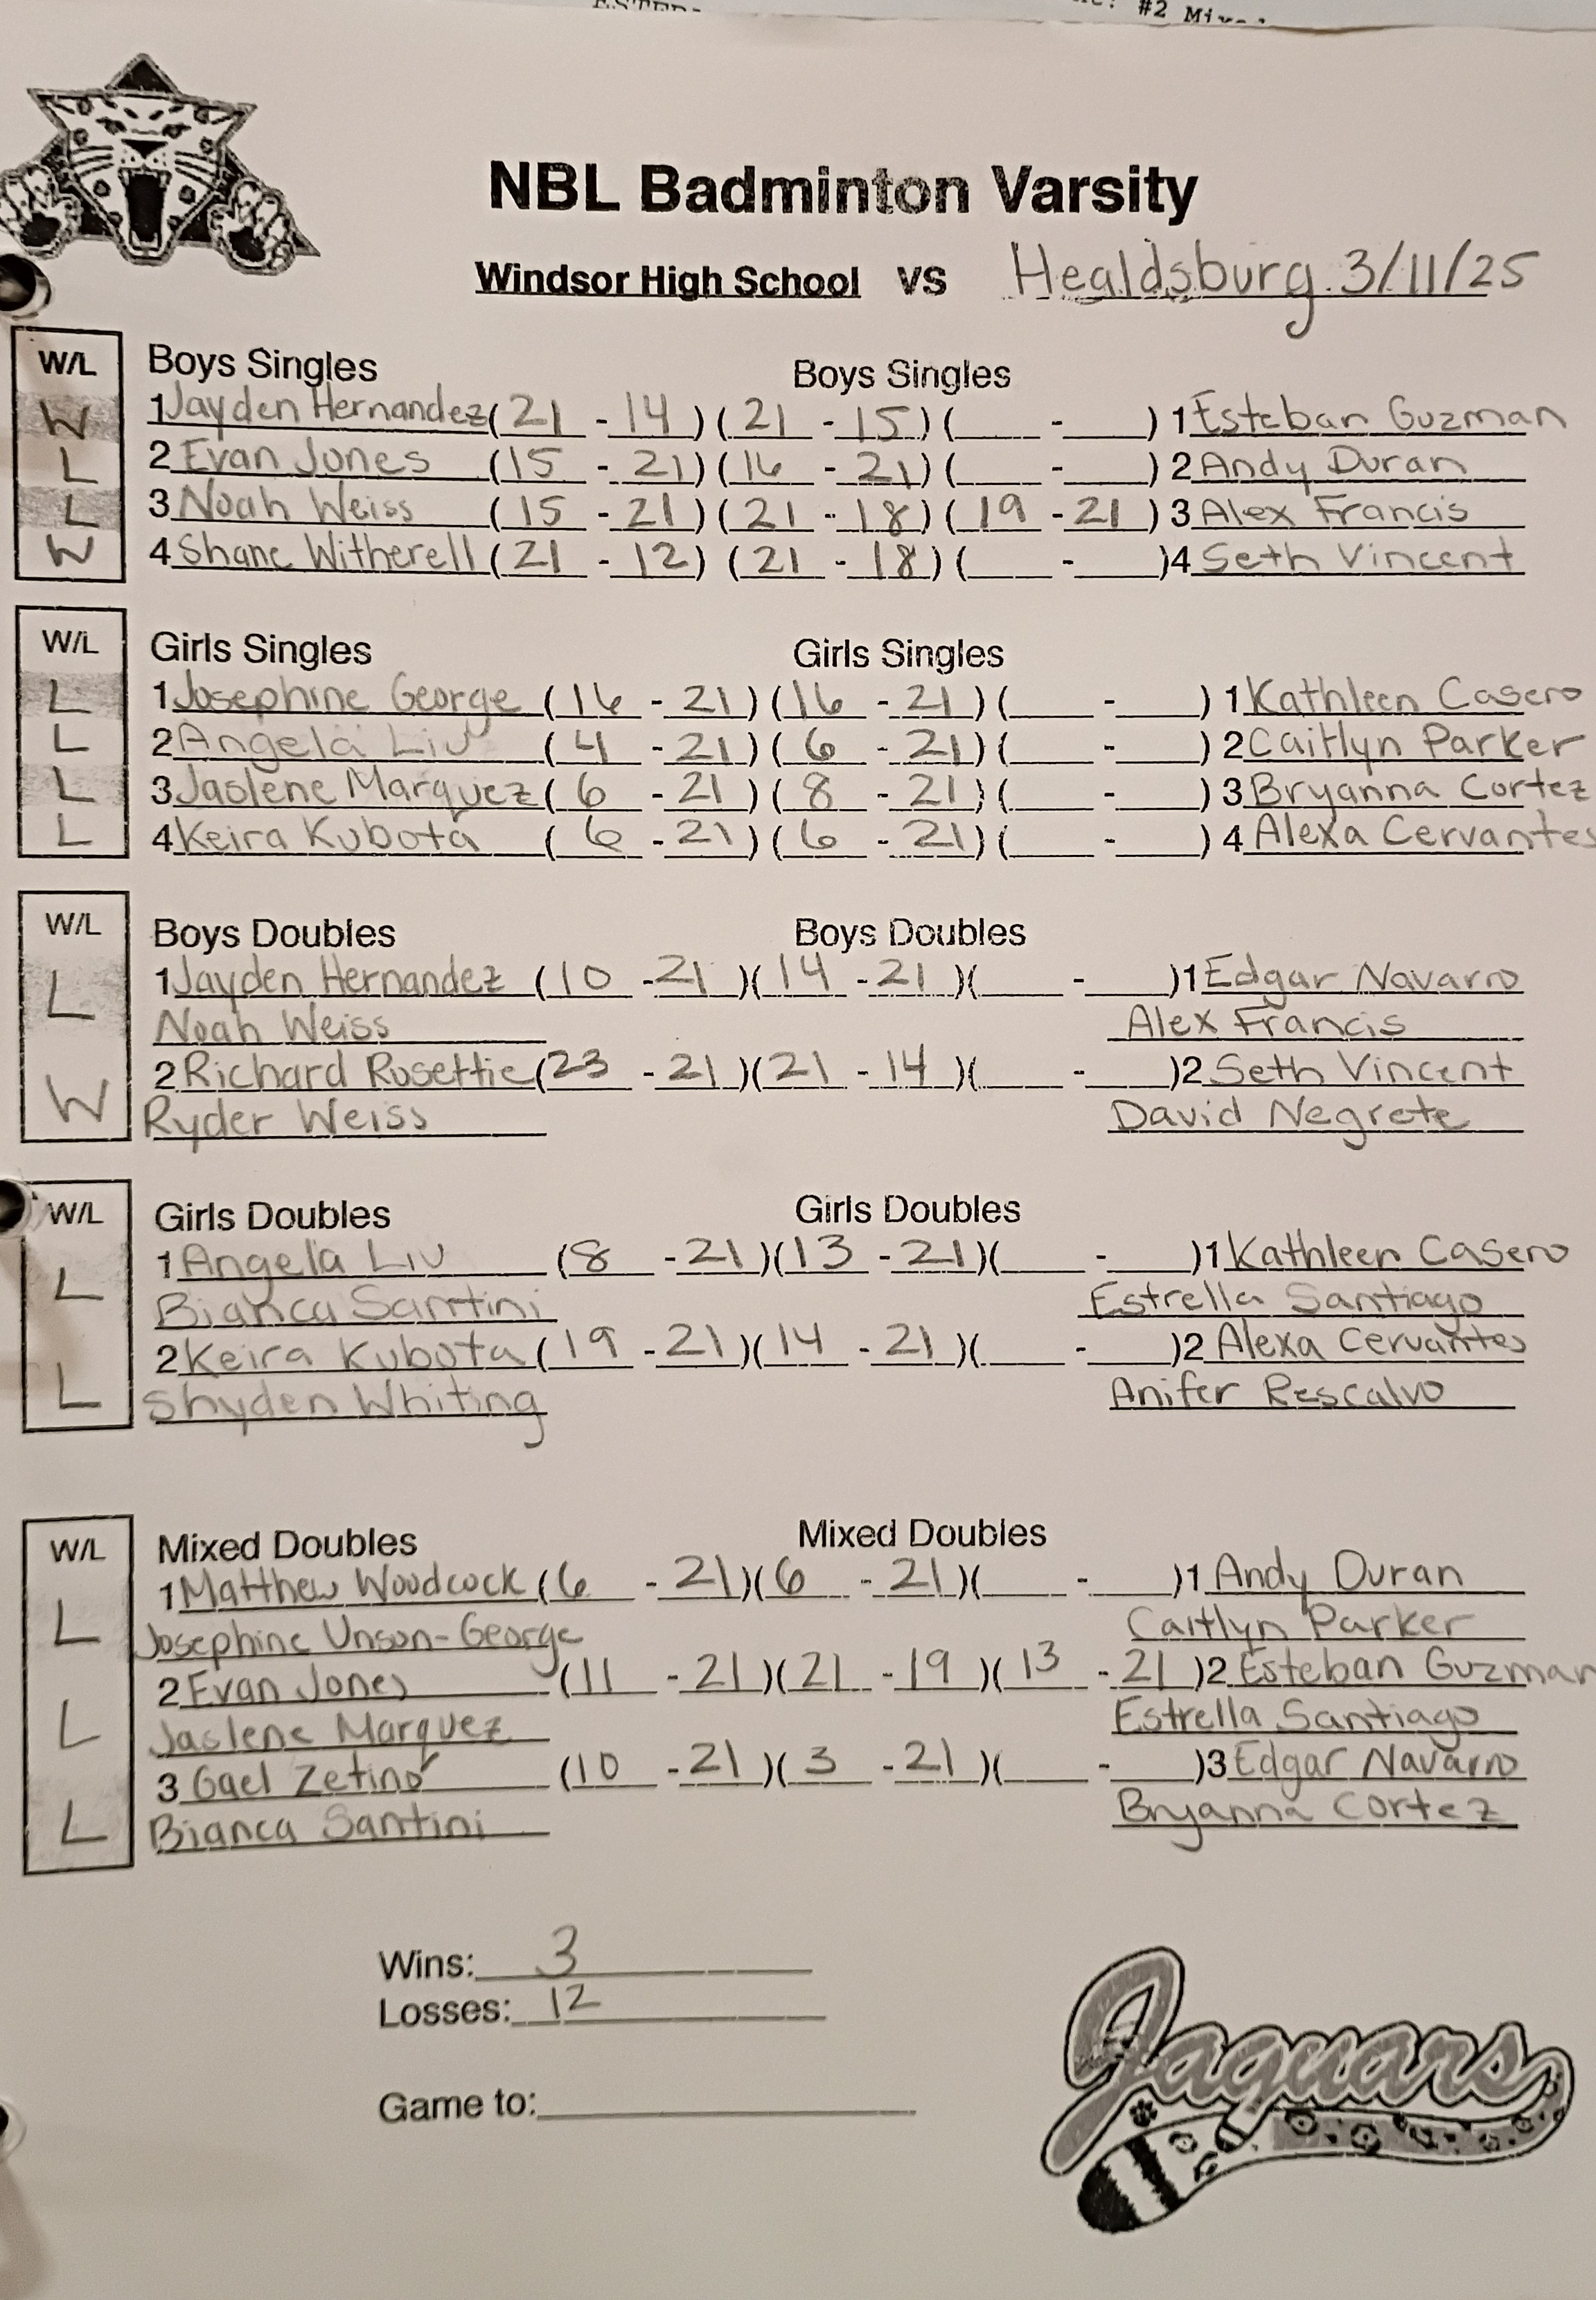 #2
NBL Badminton Varsity
Windsor High School VS Healdsburg 3/11/25
W/L Boys Singles Boys Singles
W 1 Jayden Hernandez (21 - 14) (21 - 15) ( - ) 1 Esteban Guzman
L 2 Evan Jones (15 - 21) (16 - 21) ( - ) 2 Andy Duran
L 3 Noah Weiss (15 - 21) (21 - 18) (19 - 21) 3 Alex Francis
W 4 Shane Witherell (21 - 12) (21 - 18) ( - ) 4 Seth Vincent
W/L Girls Singles Girls Singles
L 1 Josephine George (16 - 21) (16 - 21) ( - ) 1 Kathleen Casero
L 2 Angela Liu (4 - 21) (6 - 21) ( - ) 2 Caitlyn Parker
L 3 Jaslene Marquez (6 - 21) (8 - 21) ( - ) 3 Bryanna Cortez
L 4 Keira Kubota (6 - 21) (6 - 21) ( - ) 4 Alexa Cervantes
W/L Boys Doubles Boys Doubles
L 1 Jayden Hernandez (10 - 21) (14 - 21) ( - ) 1 Edgar Navarro
Noah Weiss Alex Francis
W 2 Richard Rosettie (23 - 21) (21 - 14) ( - ) 2 Seth Vincent
Ryder Weiss David Negrete
W/L Girls Doubles Girls Doubles
L 1 Angela Liu (8 - 21) (13 - 21) ( - ) 1 Kathleen Casero
Bianca Santini Estrella Santiago
L 2 Keira Kubota (19 - 21) (14 - 21) ( - ) 2 Alexa Cervantes
Shyden Whiting Anifer Rescalvo
W/L Mixed Doubles Mixed Doubles
L 1 Matthew Woodcock (6 - 21) (6 - 21) ( - ) 1 Andy Duran
Josephine Unson-George Caitlyn Parker
L 2 Evan Jones (11 - 21) (21 - 19) (13 - 21) 2 Esteban Guzman
Jaslene Marquez Estrella Santiago
L 3 Gael Zetino (10 - 21) (3 - 21) ( - ) 3 Edgar Navarro
Bianca Santini Bryanna Cortez
Wins: 3
Losses: 12
Game to:
Jaguars